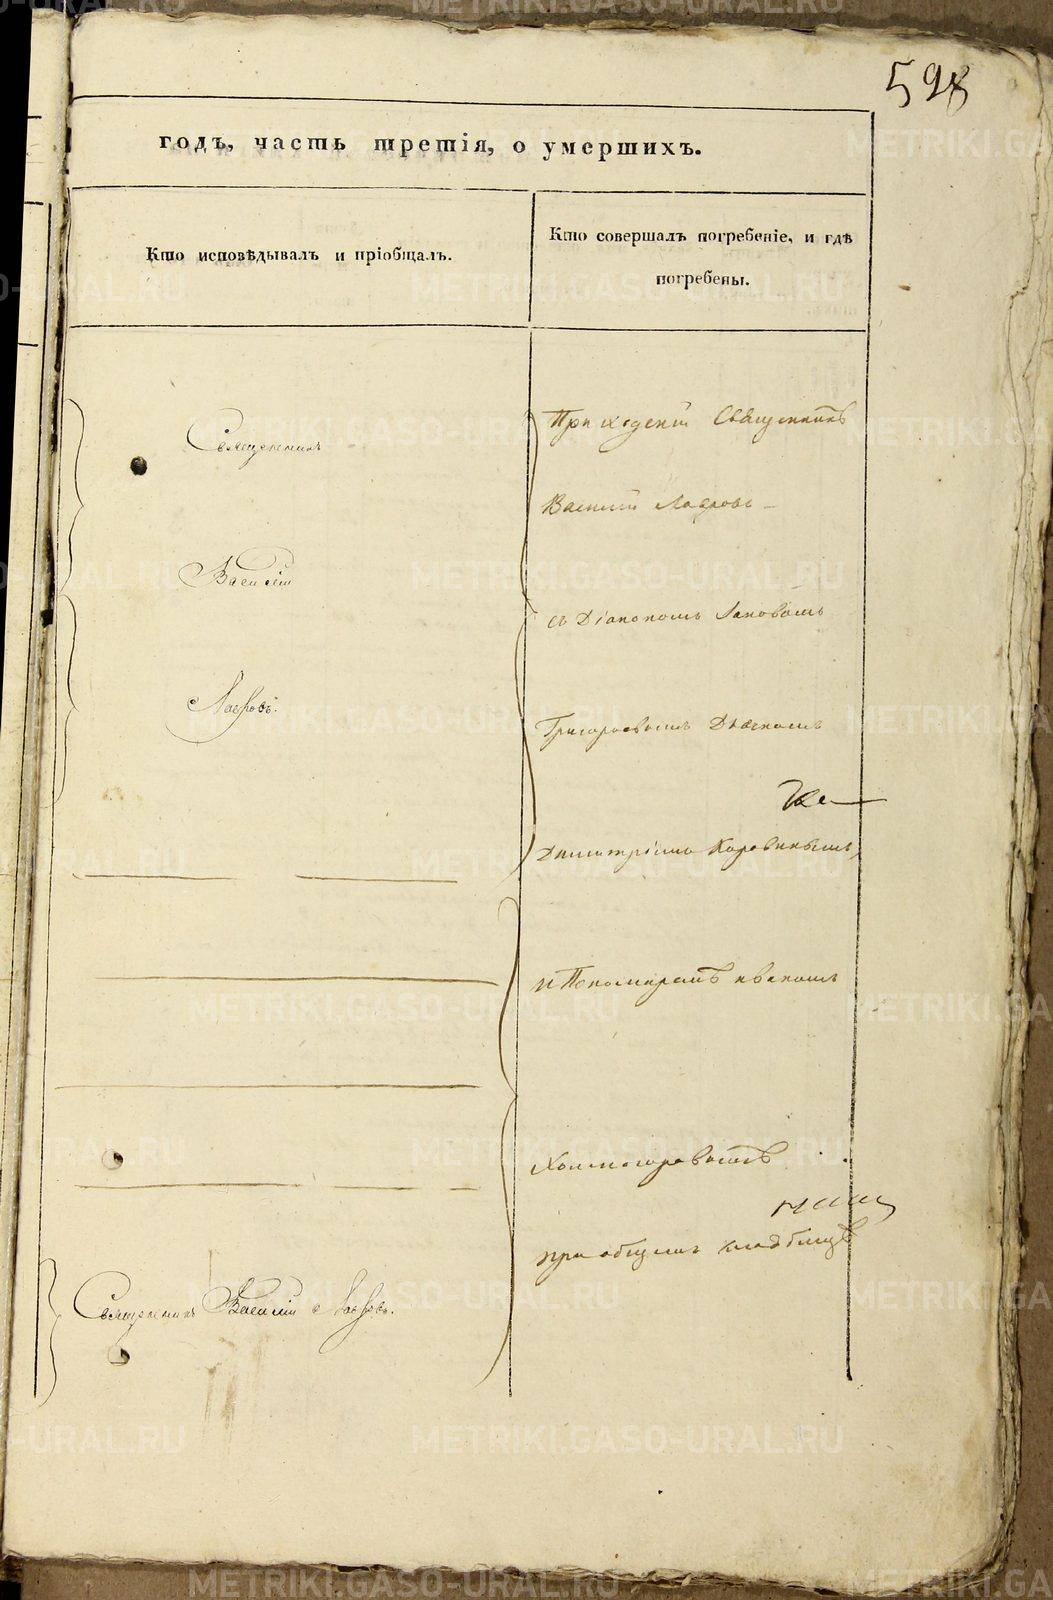 598
годъ, часть третія, о умершихъ.
Кто исповѣдывалъ и пріобщалъ.
Кто совершалъ погребеніе, и гдѣ
погребены.
Священникъ
Василій
Лавровъ.
Приходскій Священникъ
Василий Лавровъ
съ Діакономъ Іаковомъ
Григорьевымъ Дьячкомъ
Димитріемъ
и Пономаремъ
Холмогоровымъ
при общемъ кладбищѣ
Священникъ Василій Лавровъ.
METRIKI.GASO-URAL.RU